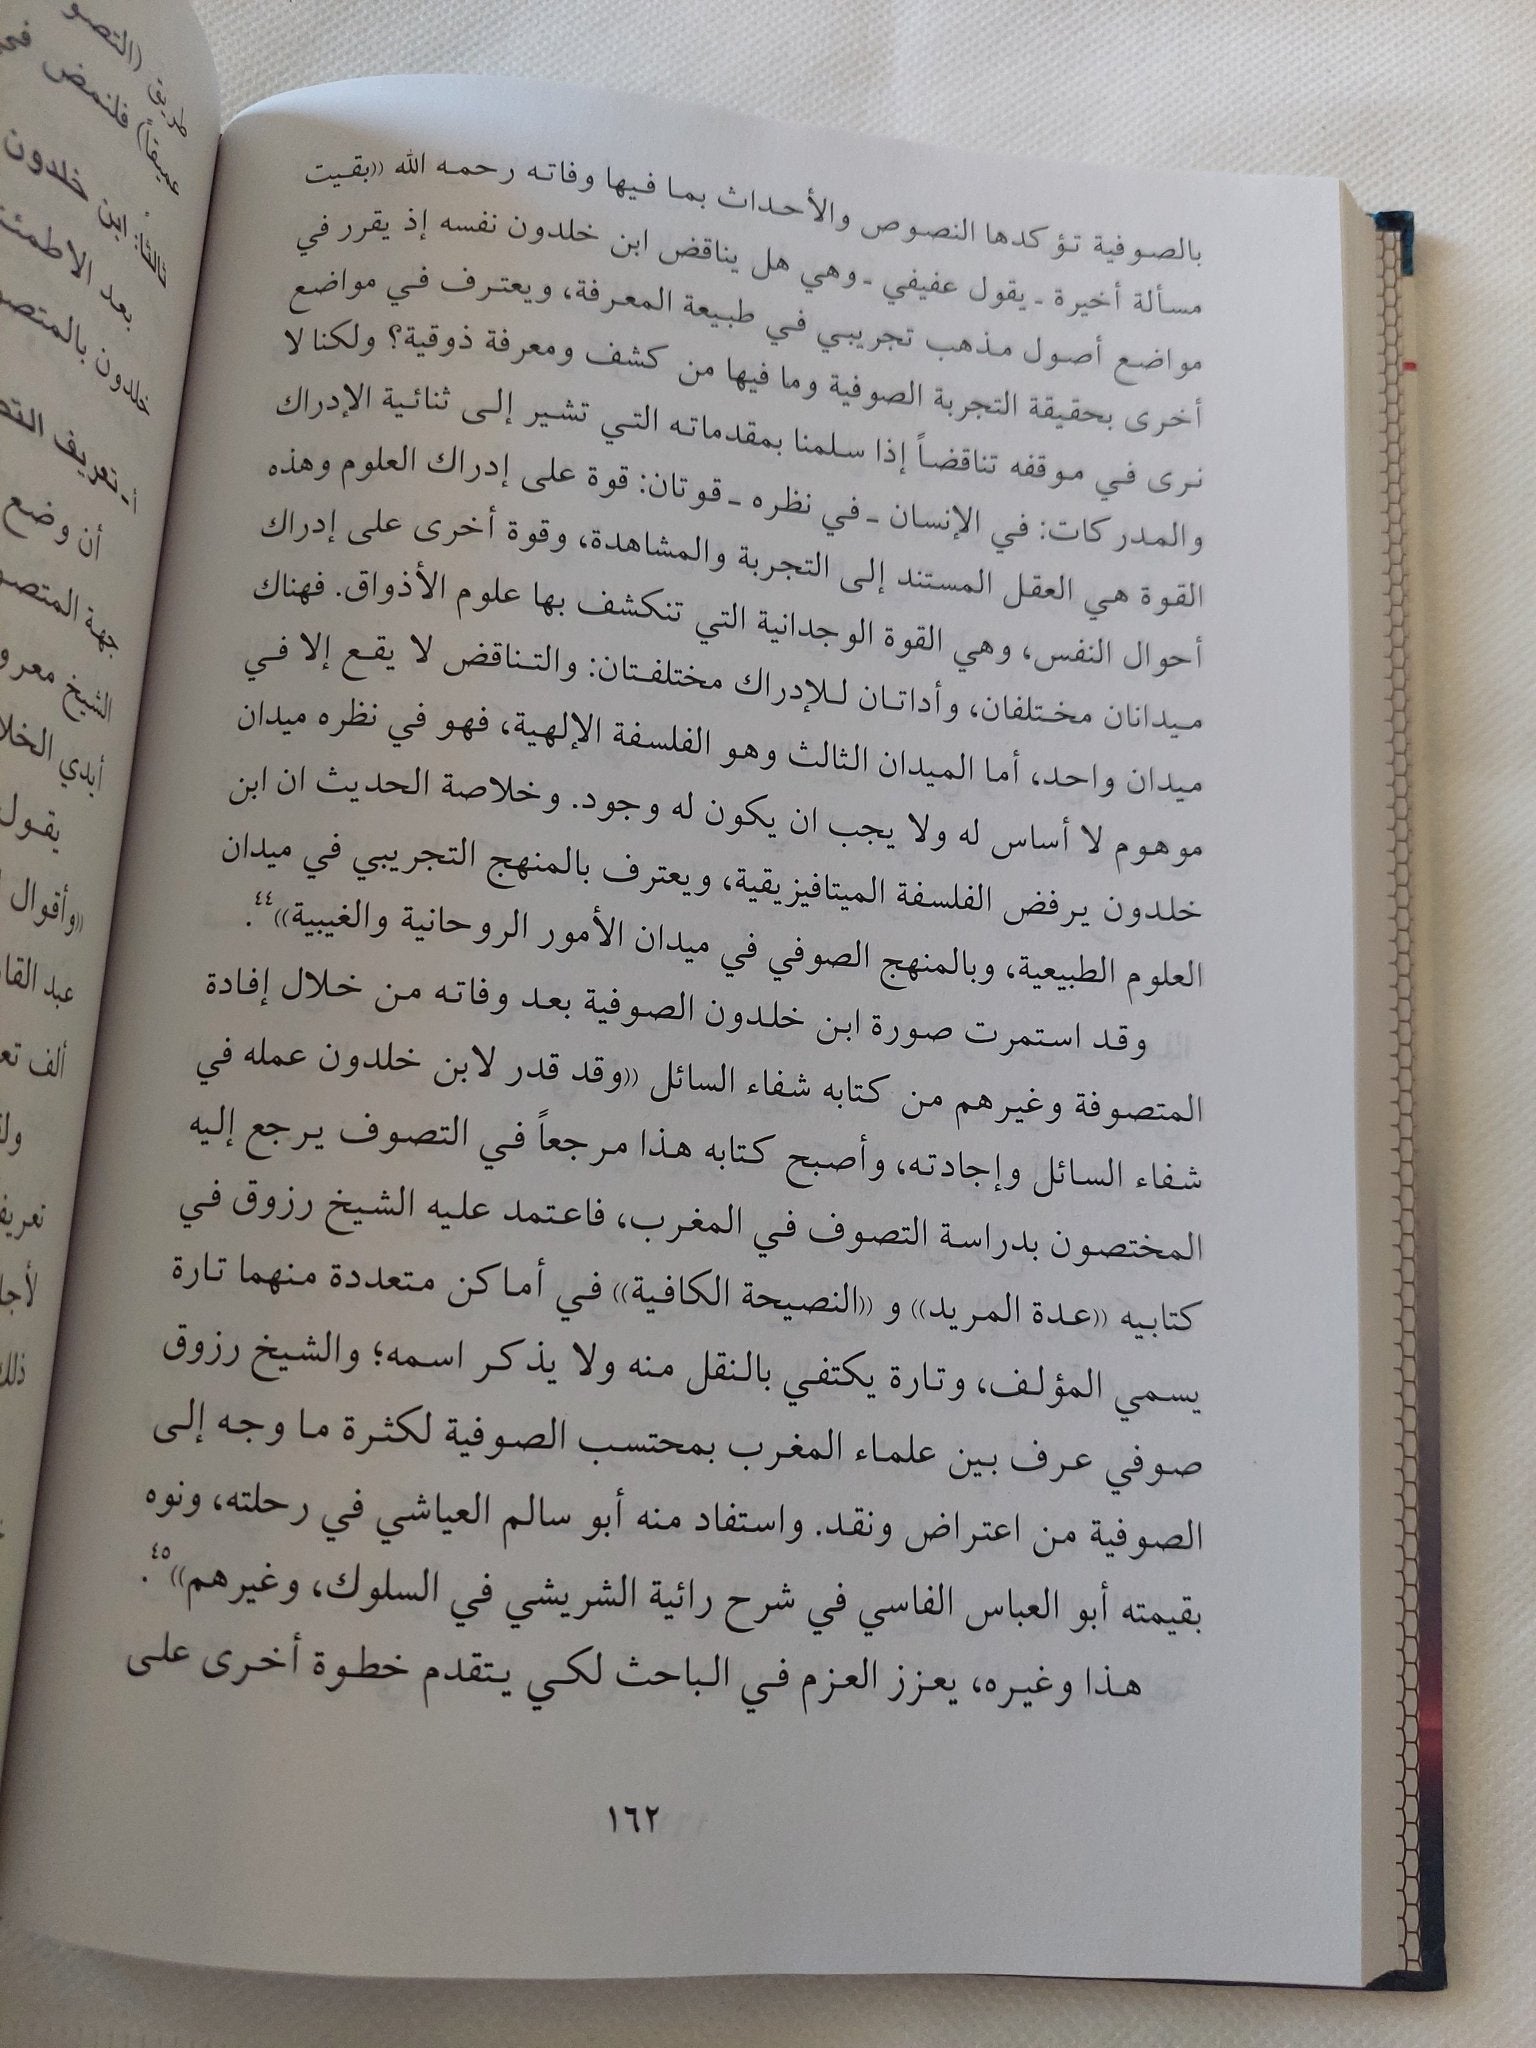 بالصوفية تؤكدها النصوص والأحداث بما فيها وفاته رحمه الله ((بقيت
مسألة أخيرة ـ يقول عفيفي ـ وهي هل يناقض ابن خلدون نفسه إذ يقرر في
مواضع أصول مذهب تجريبي في طبيعة المعرفة، ويعترف في مواضع
أخرى بحقيقة التجربة الصوفية وما فيها من كشف ومعرفة ذوقية؟ ولكنا لا
نرى في موقفه تناقضاً إذا سلمنا بمقدماته التي تشير إلى ثنائية الإدراك
والمدركات: في الإنسان ـ في نظره ـ قوتان: قوة على إدراك العلوم وهذه
القوة هي العقل المستند إلى التجربة والمشاهدة، وقوة أخرى على إدراك
أحوال النفس، وهي القوة الوجدانية التي تنكشف بها علوم الأذواق. فهناك
ميدانان مختلفان، وأداتان للإدراك مختلفتان: والتناقض لا يقع إلا في
ميدان واحد، أما الميدان الثالث وهو الفلسفة الإلهية، فهو في نظره ميدان
موهوم لا أساس له ولا يجب ان يكون له وجود. وخلاصة الحديث ان ابن
خلدون يرفض الفلسفة الميتافيزيقية، ويعترف بالمنهج التجريبي في ميدان
العلوم الطبيعية، وبالمنهج الصوفي في ميدان الأمور الروحانية والغيبية))٤٤.
وقد استمرت صورة ابن خلدون الصوفية بعد وفاته من خلال إفادة
المتصوفة وغيرهم من كتابه شفاء السائل ((وقد قدر لابن خلدون عمله في
شفاء السائل وإجادته، وأصبح كتابه هذا مرجعاً في التصوف يرجع إليه
المختصون بدراسة التصوف في المغرب، فاعتمد عليه الشيخ رزوق في
كتابيه ((عدة المريد)) و ((النصيحة الكافية)) في أماكن متعددة منهما تارة
يسمي المؤلف، وتارة يكتفي بالنقل منه ولا يذكر اسمه؛ والشيخ رزوق
صوفي عرف بين علماء المغرب بمحتسب الصوفية لكثرة ما وجه إلى
الصوفية من اعتراض ونقد. واستفاد منه أبو سالم العياشي في رحلته، ونوه
بقيمته أبو العباس الفاسي في شرح رائية الشريشي في السلوك، وغيرهم))٤٥.
هذا وغيره، يعزز العزم في الباحث لكي يتقدم خطوة أخرى على
١٦٢
طريق (التصو
عميقاً) فلنمض
ثالثاً: ابن خلدون
بعد الاطمئ
خلدون بالمتصو
أ ـ تعريف
أن وضع
جهة المتصو
الشيخ معرو
أبدي الخلا
يقول
((وأقوال
عبد القا
ألف تع
تعريف
لأجا
ذلك